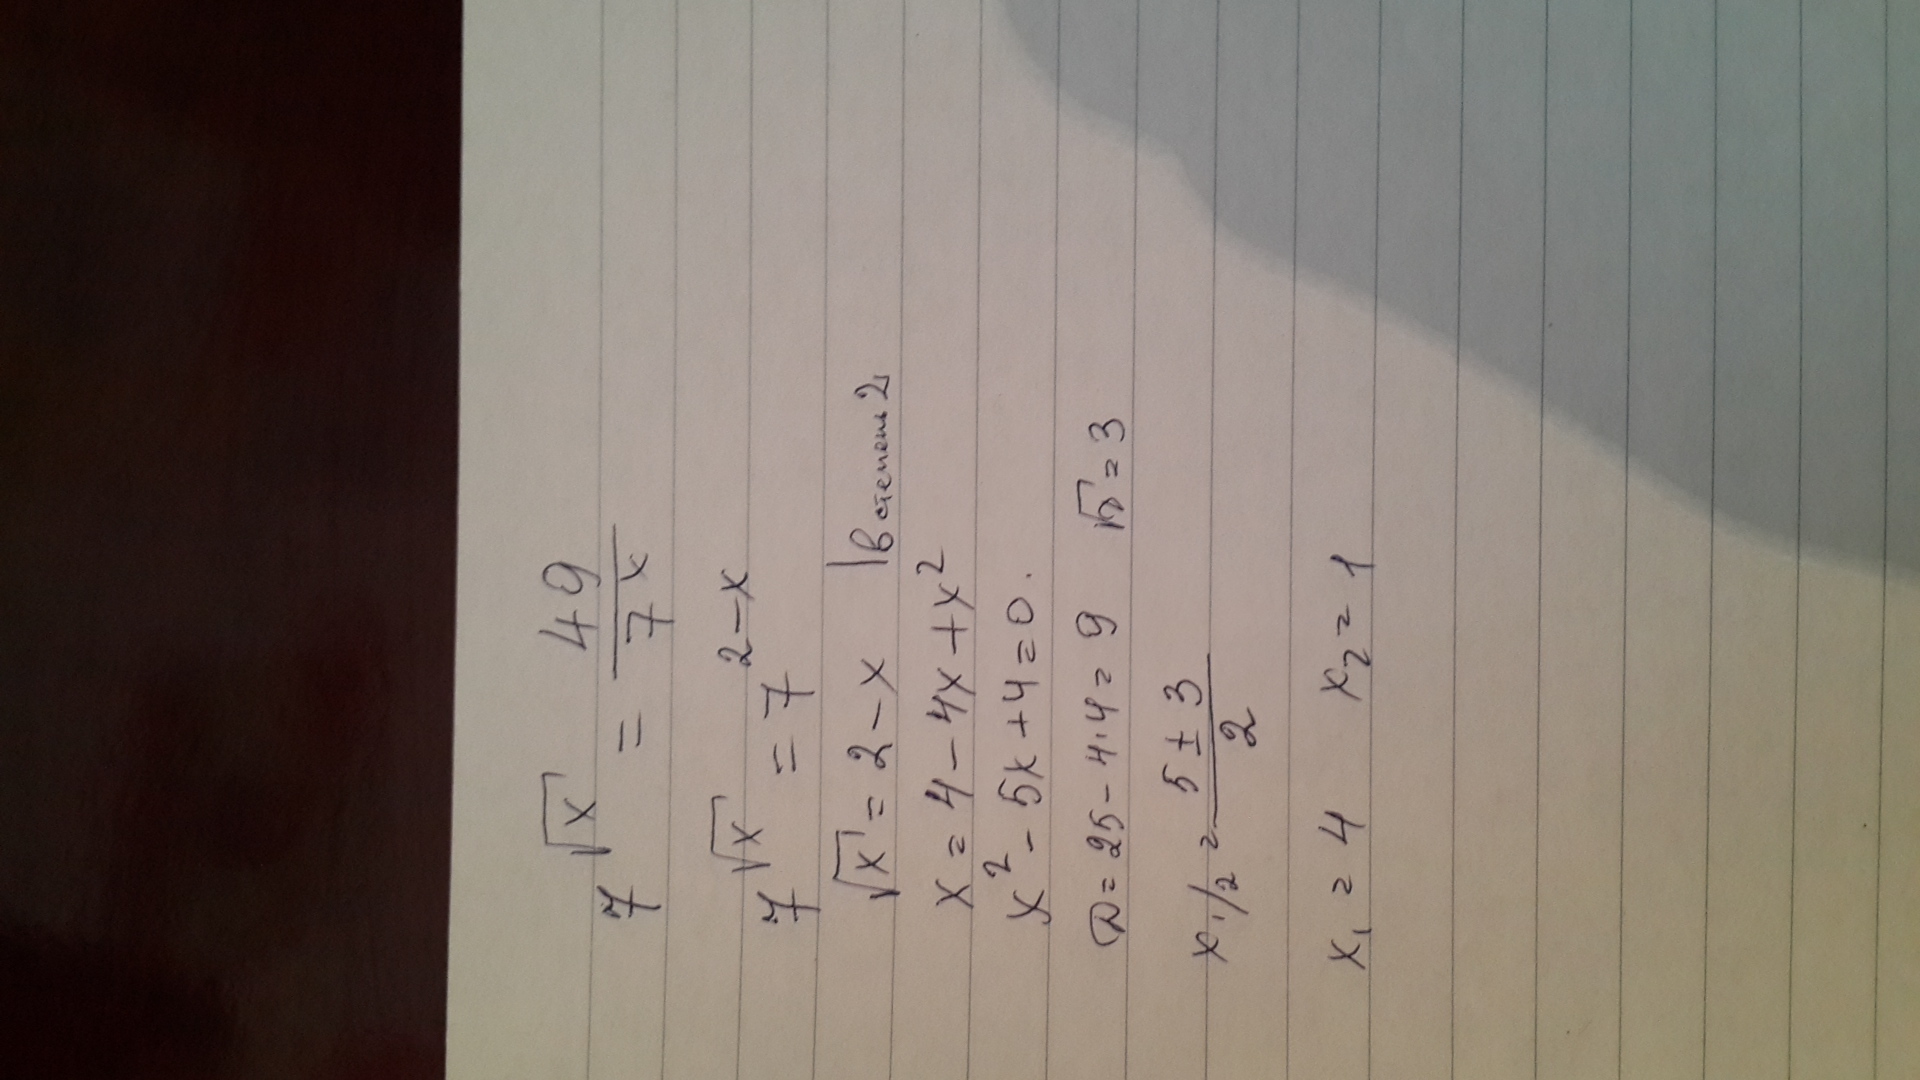 7^√x = 49/7^x
7^√x = 7^2-x
√x = 2 - x | в степень 2
x = 4 - 4x + x²
x² - 5x + 4 = 0.
D = 25 - 4·4 = 9 √D = 3
x1/2 = 5 ± 3 / 2
x₁ = 4 x₂ = 1